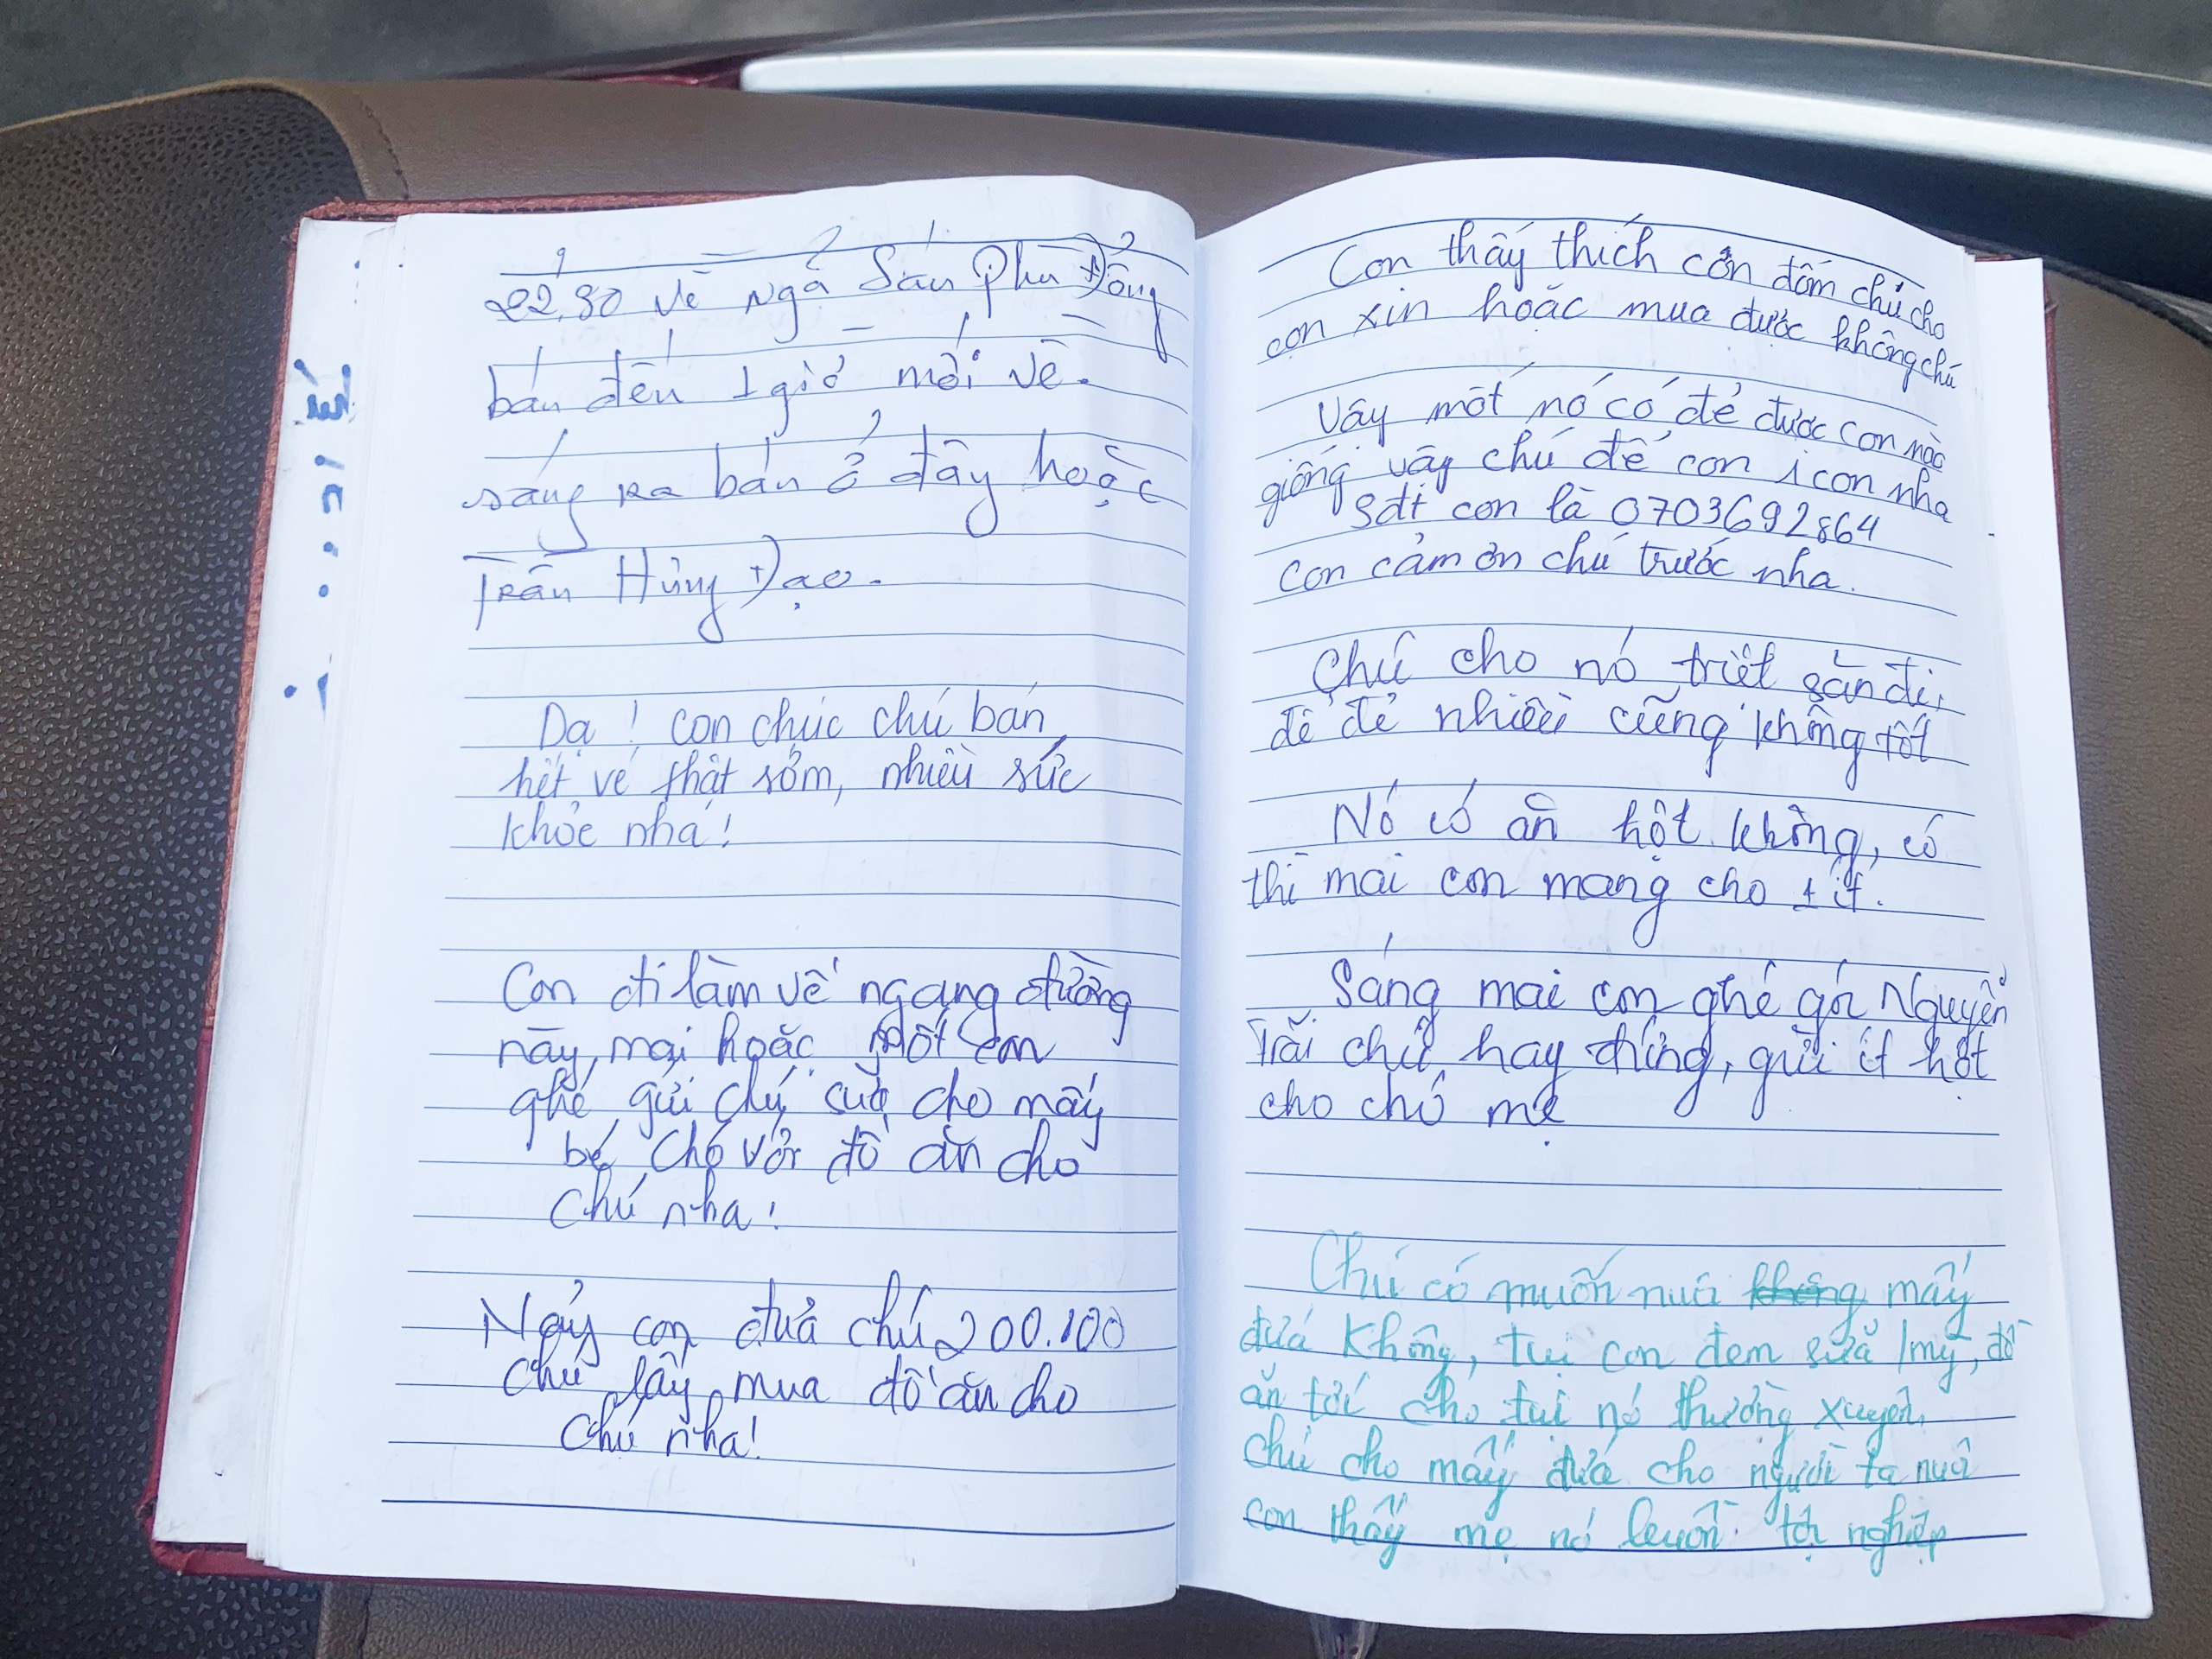 22.30 về ngã Sáu Phù Đổng
bán đến 1 giờ mới về.
sáng ra bán ở đây hoặc
Trần Hưng Đạo.
Dạ! Con chúc chú bán
hết vé thật sớm, nhiều sức
khỏe nha!
Con đi làm về ngang đường
này, mai hoặc mốt con
ghé gửi chú sữa cho mấy
bé chó với đồ ăn cho
Chú nha!
Nảy con đưa chú 200.100
Chú lấy mua đồ ăn cho
Chú nha!
Con thấy thích con đốm chú cho
con xin hoặc mua được không chú
Vậy mốt nó có đẻ được con nào
giống vậy chú để con 1 con nha
Sđt con là 0703692864
Con cảm ơn chú trước nha.
Chú cho nó triệt sản đi,
để đẻ nhiều cũng không tốt
Nó có ăn hột không, có
thì mai con mang cho 1 ít.
Sáng mai con ghé góc Nguyễn
Trãi chú hay đứng, gửi ít hột
cho chó mẹ
Chú có muốn nuôi không mấy
đứa không, tụi con đem sữa, đồ
ăn tới cho tụi nó thường xuyên.
chú cho mấy đứa cho người ta nuôi
con thấy mẹ nó buồn tội nghiệp